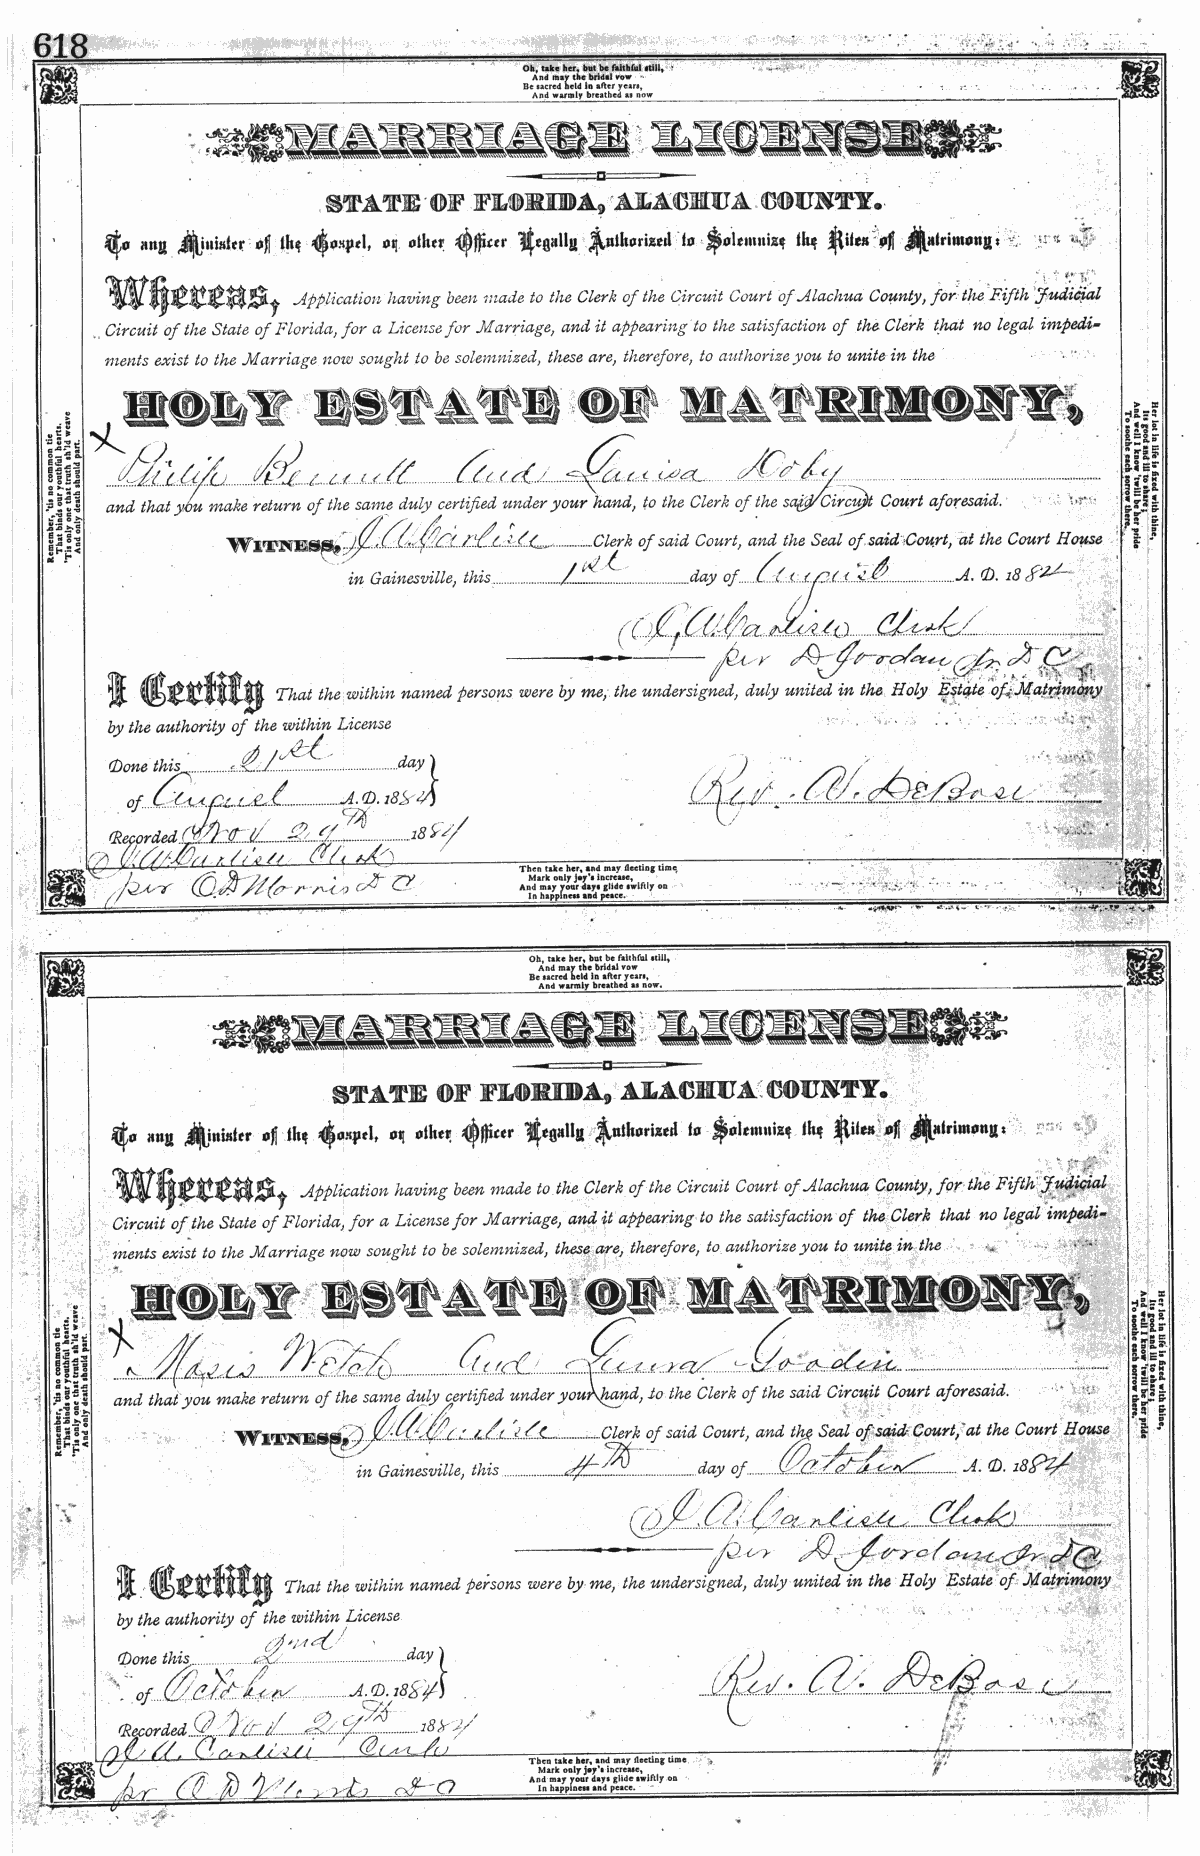 618
Oh, take her, but be faithful still,
And may the bridal vow
Be sacred held in after years,
And warmly breathed as now
MARRIAGE LICENSE
STATE OF FLORIDA, ALACHUA COUNTY.
To any Minister of the Gospel, or other Officer Legally Authorized to Solemnize the Rites of Matrimony:
Whereas, Application having been made to the Clerk of the Circuit Court of Alachua County, for the Fifth Judicial
Circuit of the State of Florida, for a License for Marriage, and it appearing to the satisfaction of the Clerk that no legal impedi-
ments exist to the Marriage now sought to be solemnized, these are, therefore, to authorize you to unite in the
HOLY ESTATE OF MATRIMONY,
X
Philip Bennett and Louisa Doby
and that you make return of the same duly certified under your hand, to the Clerk of the said Circuit Court aforesaid.
WITNESS, J. A. Carlisle Clerk of said Court, and the Seal of said Court, at the Court House
in Gainesville, this 1st day of August A. D. 1884
J. A. Carlisle Clerk
per D Jordan Jr. D C
I Certify That the within named persons were by me, the undersigned, duly united in the Holy Estate of Matrimony
by the authority of the within License
Done this 21st day
of August A. D. 1884
Rev. A. DeBose
Recorded Nov 29TH 1884
J. A. Carlisle Clerk
per C D Morris D C
Remember, 'tis no common tie
That binds our youthful hearts,
'Tis only one that truth sh'ld weave
And only death should part.
Her lot in life is fixed with thine,
Its good and ill to share;
And well I know 'twill be her pride
To soothe each sorrow there.
Then take her, and may fleeting time
Mark only joy's increase,
And may your days glide swiftly on
In happiness and peace.
Oh, take her, but be faithful still,
And may the bridal vow
Be sacred held in after years,
And warmly breathed as now.
MARRIAGE LICENSE
STATE OF FLORIDA, ALACHUA COUNTY.
To any Minister of the Gospel, or other Officer Legally Authorized to Solemnize the Rites of Matrimony:
Whereas, Application having been made to the Clerk of the Circuit Court of Alachua County, for the Fifth Judicial
Circuit of the State of Florida, for a License for Marriage, and it appearing to the satisfaction of the Clerk that no legal impedi-
ments exist to the Marriage now sought to be solemnized, these are, therefore, to authorize you to unite in the
HOLY ESTATE OF MATRIMONY,
X
Moses Welch and Laura Goodin
and that you make return of the same duly certified under your hand, to the Clerk of the said Circuit Court aforesaid.
WITNESS, J. A. Carlisle Clerk of said Court, and the Seal of said Court, at the Court House
in Gainesville, this 4TH day of October A. D. 1884
J. A. Carlisle Clerk
per D Jordan Jr D C
I Certify That the within named persons were by me, the undersigned, duly united in the Holy Estate of Matrimony
by the authority of the within License
Done this 2nd day
of October A. D. 1884
Rev. A. DeBose
Recorded Nov 29TH 1884
J. A. Carlisle Clerk
pr C D Morris D C
Remember, 'tis no common tie
That binds our youthful hearts,
'Tis only one that truth sh'ld weave
And only death should part.
Her lot in life is fixed with thine,
Its good and ill to share;
And well I know 'twill be her pride
To soothe each sorrow there.
Then take her, and may fleeting time
Mark only joy's increase,
And may your days glide swiftly on
In happiness and peace.